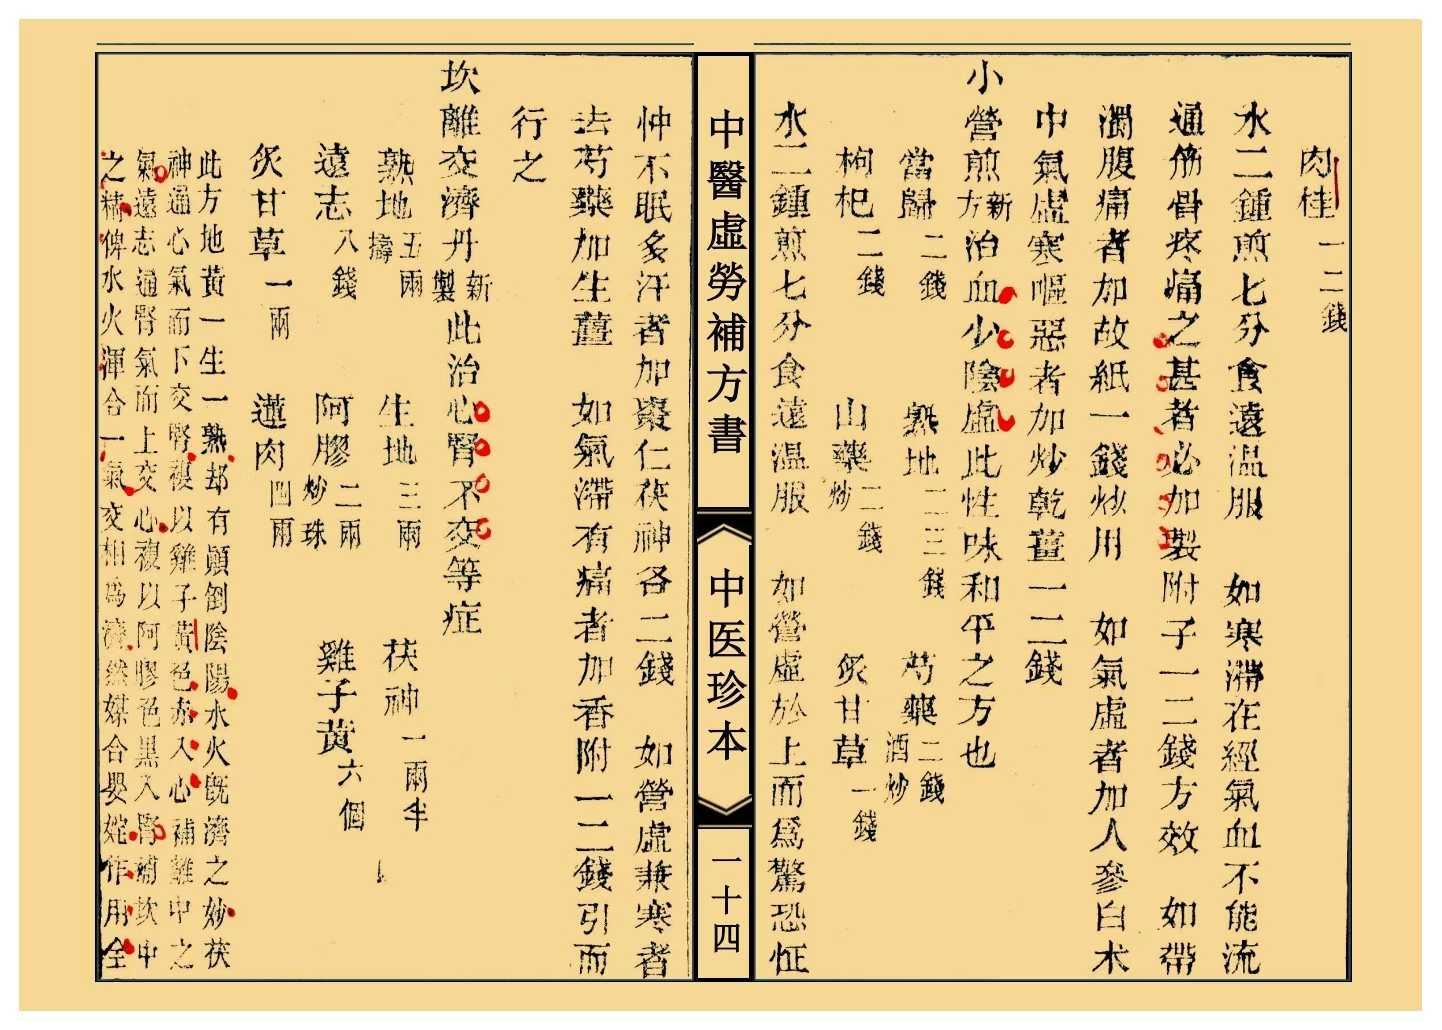 肉桂一二錢
水二鍾煎七分食遠温服　如寒滯在經氣血不能流
通筋骨疼痛之甚者必加製附子一二錢方效　如帶
濁腹痛者加故紙一錢炒用　如氣虛者加人參白术
中氣虛寒嘔惡者加炒乾薑一二錢
小營煎新方治血少陰虛此性味和平之方也
當歸二錢　熟地二三錢　芍藥酒炒二錢
枸杞二錢　山藥炒二錢　炙甘草一錢
水二鍾煎七分食遠温服　如營虛於上而爲驚恐怔
中醫虛勞補方書
中医珍本
一十四
忡不眠多汗者加棗仁茯神各二錢　如營虛兼寒者
去芍藥加生薑　如氣滯有痛者加香附一二錢引而
行之
坎離交濟丹新製此治心腎不交等症
熟地五兩擣　生地三兩　茯神一兩半
遠志八錢　阿膠二兩炒珠　雞子黄六個
炙甘草一兩　蓮肉四兩
此方地黄一生一熟却有顛倒陰陽水火既濟之妙茯
神通心氣而下交腎複以雞子黄色赤入心補離中之
氣遠志通腎氣而上交心複以阿膠色黒入腎補坎中
之精俾水火渾合一氣交相爲濟然媒合嬰姹作用全